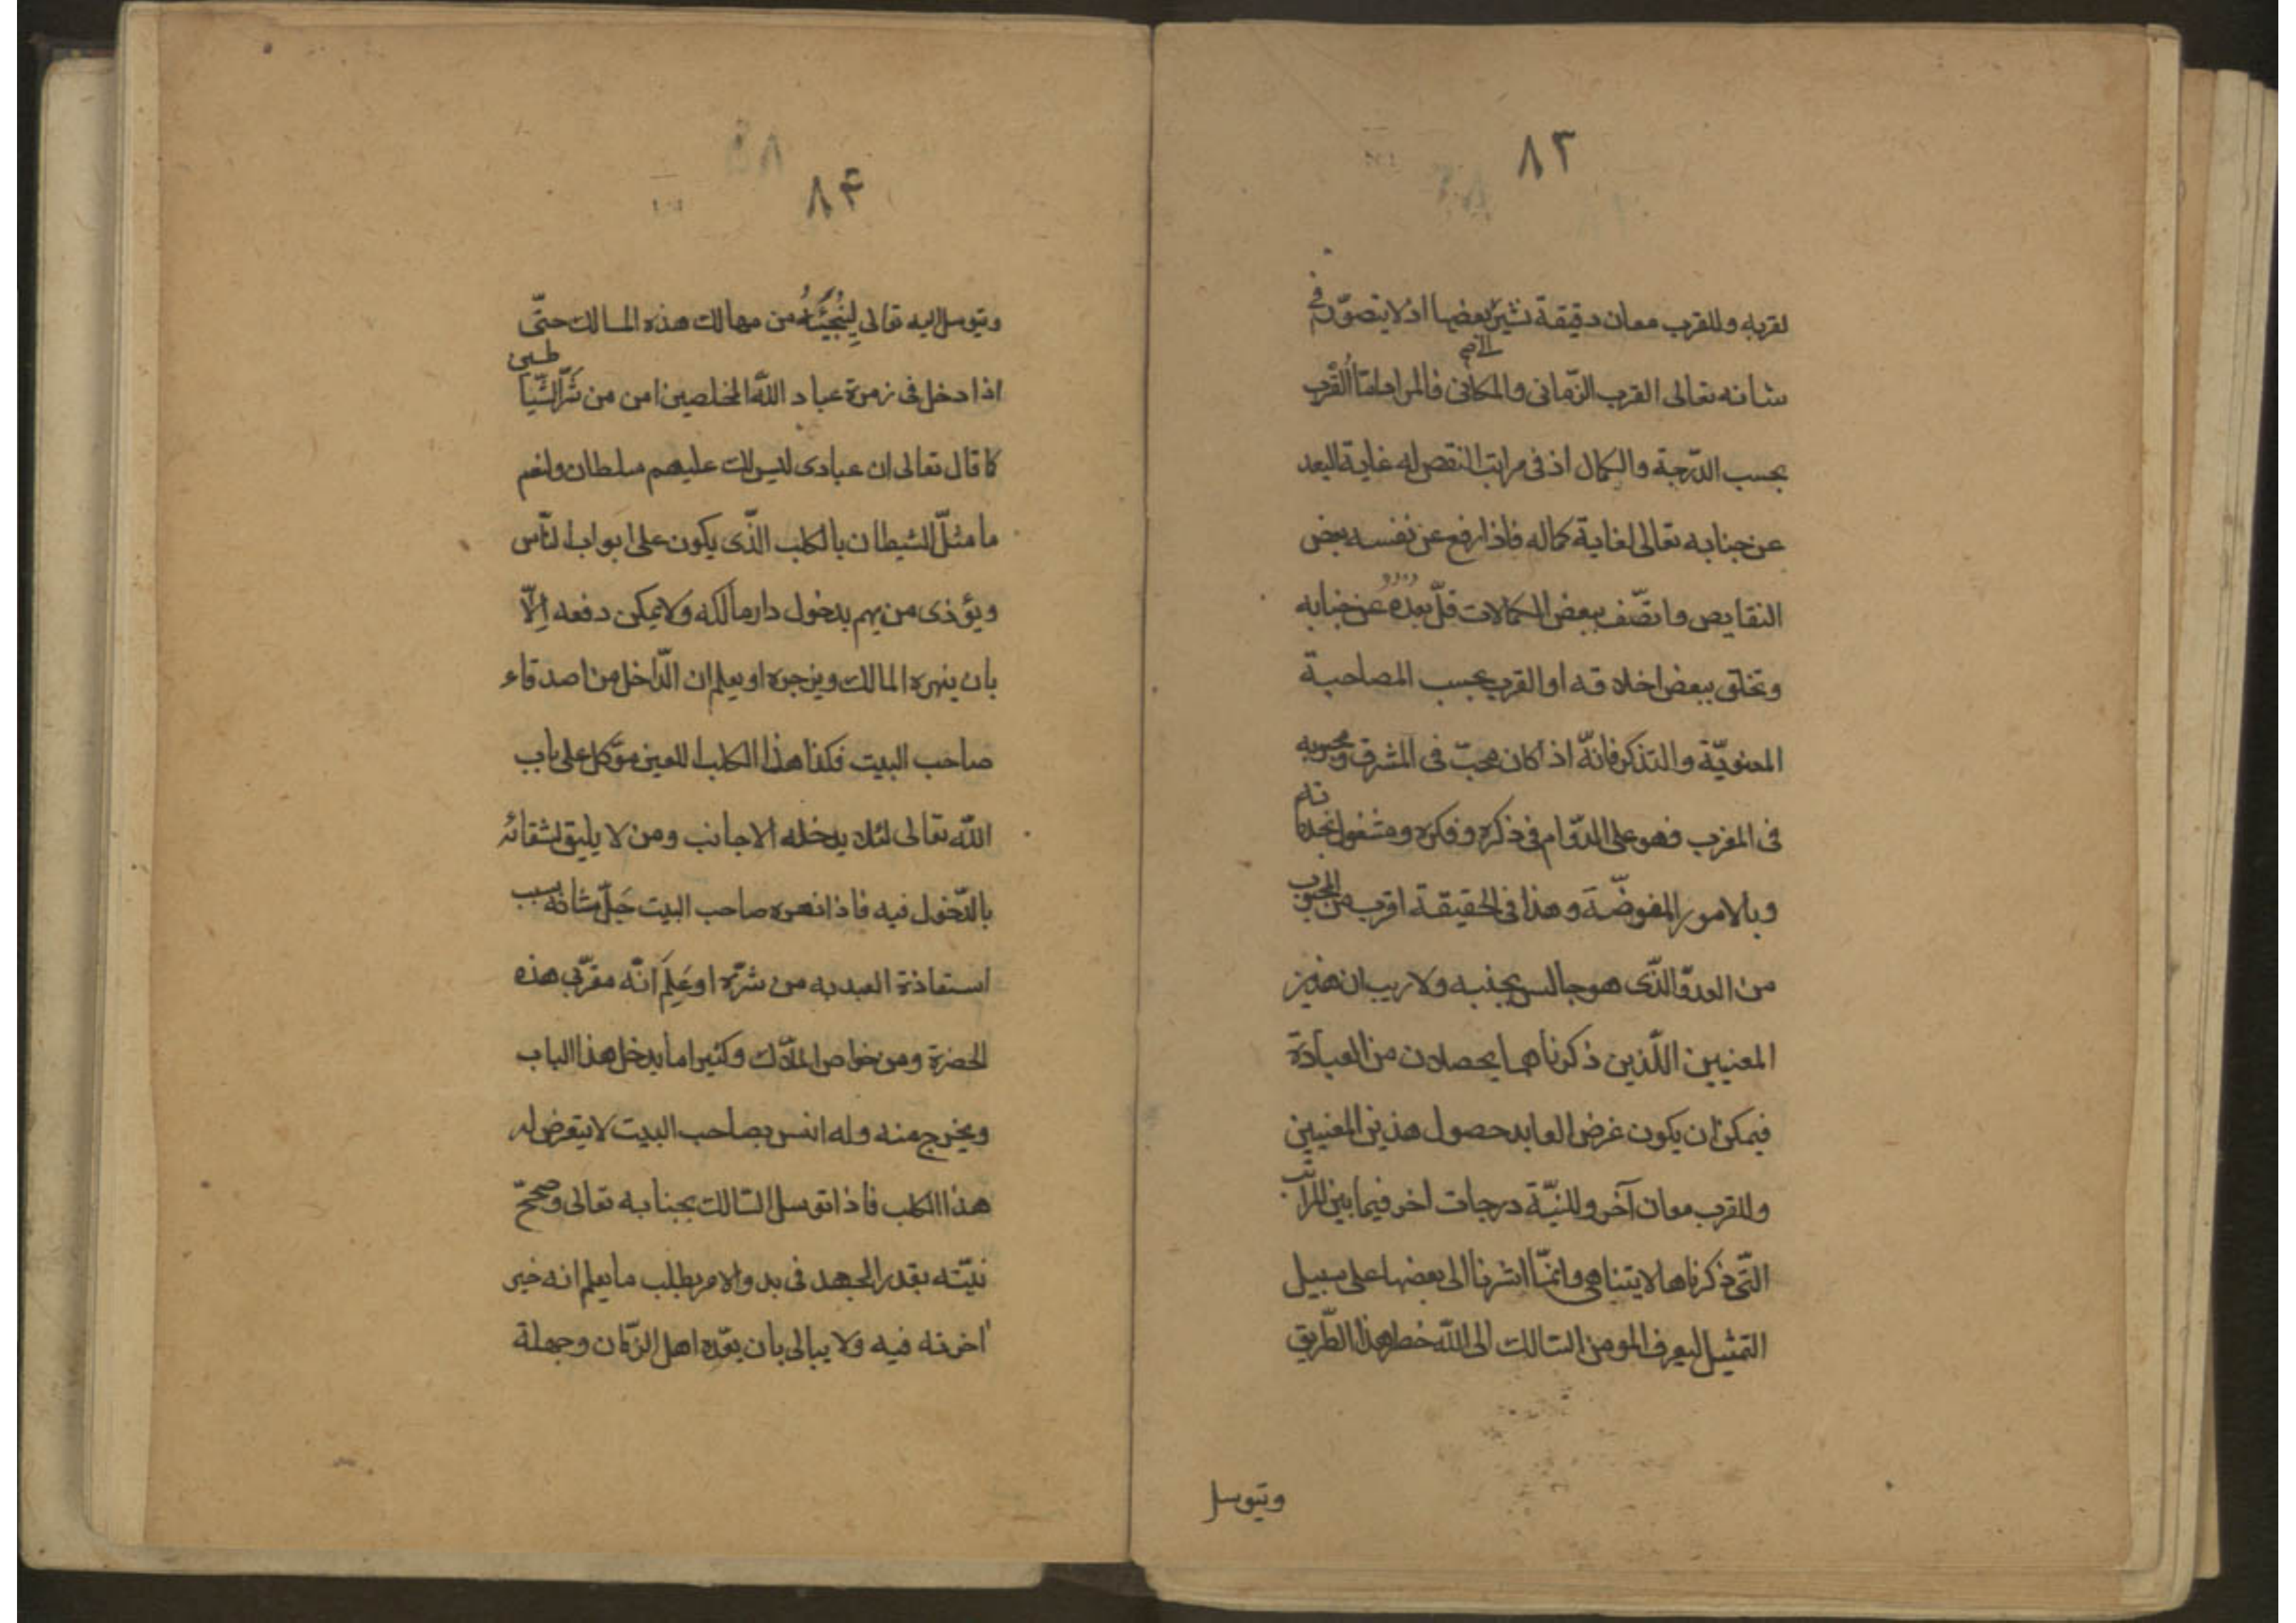 ٨٣
لقربه وللقرب معان دقيقة نشير بعضها اذ لا يتصوّر في
شانه تعالى القرب الزّماني والمكاني فالمراد امّا القرب
بحسب الدّرجة والكمال اذ في مراتب النقص له غاية البعد
عن جنابه تعالى لغاية كماله فاذا رفع عن نفسه بعض
النقايص واتصّف ببعض الكمالات قلّ بعده عن جنابه
وتخلق ببعض اخلاقه او القرب بحسب المصاحبة
المعنويّة والتذكر فانّه اذا كان محبّ في المشرق ومحبوبه
في المغرب فهو على الدّوام في ذكره وفكره ومشغول بخدماته
وبالامور المفوضّة وهذا في الحقيقة اقرب من المحبوب
من العدوّ الذّي هو جالس بجنبه ولا ريب ان هذين
المعنيين اللّذين ذكرناهما يحصلان من العبادة
فيمكن ان يكون غرض العابد حصول هذين المعنيين
وللقرب معان آخر وللنيّة درجات اخر فيما بين المراتب
التّي ذكرناها لا يتناهى وانمّا اشرنا الى بعضها على سبيل
التمثيل ليعرف المومن السالك الى اللّه خطر هذا الطّريق
ويتوسل
٨٤
ويتوسل اليه تعالى لِيُنْجِيَنَّهُ من مهالك هذه المسالك حتّى
اذا دخل في زمرة عباد اللّه المخلصين امن من شَرِّ الشّياطين
كما قال تعالى ان عبادى ليس لك عليهم سلطان ولنعم
ما مثلّ الشيطان بالكلب الذّى يكون على ابواب النّاس
ويؤذى من يهم بدخول دار مالكه ولا يمكن دفعه اِلّا
بان ينهره المالك ويزجره او يعلم ان الدّاخل من اصدقاء
صاحب البيت فكذا هذا الكلب اللعين موّكل على باب
اللّه تعالى لئلا يدخله الاجانب ومن لا يليق لشقائه
بالدّخول فيه فاذا نهره صاحب البيت جَلّ شانه بسبب
استعاذة العبد به من شرّه او عَلِمَ انّه مقرّبى هذه
الحضرة ومن خواص الملّاك وكثيرا ما يدخل هذا الباب
ويخرج منه وله انس بصاحب البيت لا يتعرض له
هذا الكلب فاذا توسل السالك بجنابه تعالى وصححّ
نيّته بقدر الجهد في بدو الامر يطلب ما يعلم انه خير
اخرته فيه ولا يبالى بان يعّده اهل الزّمان وجهلة